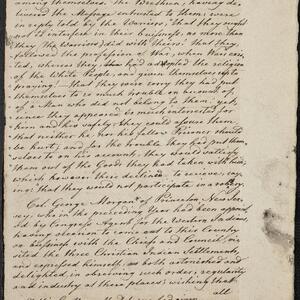 among themselves. The Brethren, having de-
livered the Message entrusted to them, were
in reply told by the Warriors, that they ought
not to interfere in their business, no more than
they the Warriors did with theirs: That they,
followed the profession of War, when War exis-
ted, whereas they had adopted the religion
of the White People, and given themselves up to
praying — that they were sorry they had put
themselves to so much trouble on account of
of a Man who did not belong to them; yet,
since they appeared so much interested for
him and his safety, they could assure them
that neither he nor his fellow Prisoner should
be hurt; and for the trouble they had put them-
selves to on his account, they would restore
them part of the Goods they had taken with him;
which however these declined to receive, say-
ing: that they would not participate in a robbery.
Col. George Morgan of Princeton New Jer-
sey, who in the preceding Year had been appoint-
ed by Congress Agent for the Western Indians
having occasion to come out to this Country
on business with the Chiefs and Council, vi-
sited the three Christian Indian Settlements,
and expressed himself, as both astonished and
delighted, in observing such order, regularity
and industry as these places; wishing that